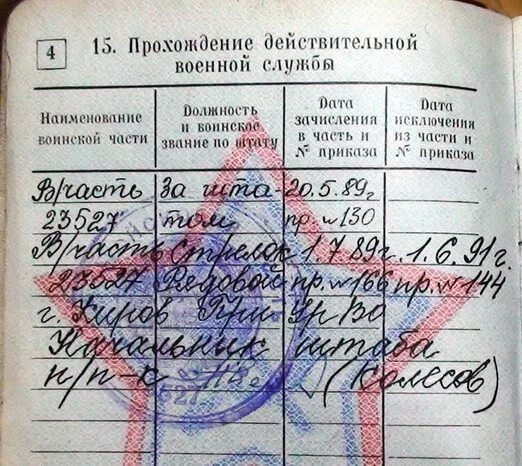 4
15. Прохождение действительной
военной службы
Наименование воинской части
Должность и воинское звание по штату
Дата зачисления в часть и № приказа
Дата исключения из части и № приказа
В/часть За шта- 20.5.89г
23527 том пр. № 130
В/часть Стрелок 1.7.89г. 1.6.91г.
23527 Рядовой пр. № 166 пр. № 144
г. Киров УрВО
Начальник штаба
п/п-к (Колесов)